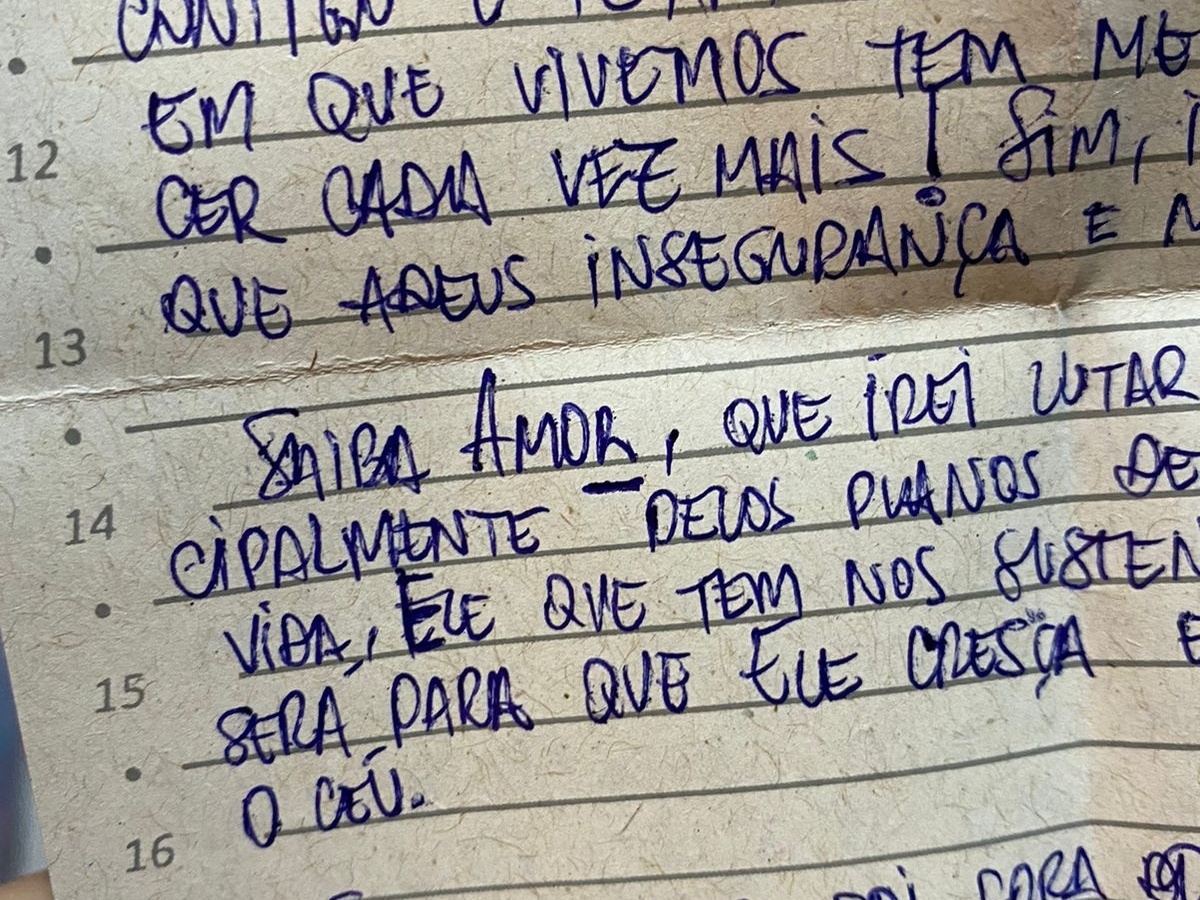 EM QUE VIVEMOS TEM ME
12
CER CADA VEZ MAIS! SIM, I
QUE ADEUS INSEGURANÇA E M
13
SAIBA AMOR, QUE IREI LUTAR
14
CIPALMENTE PELOS PLANOS DE
VIDA, ELE QUE TEM NOS SUSTEN
15
SERÁ PARA QUE ELE CRESÇA E
O CÉU.
16